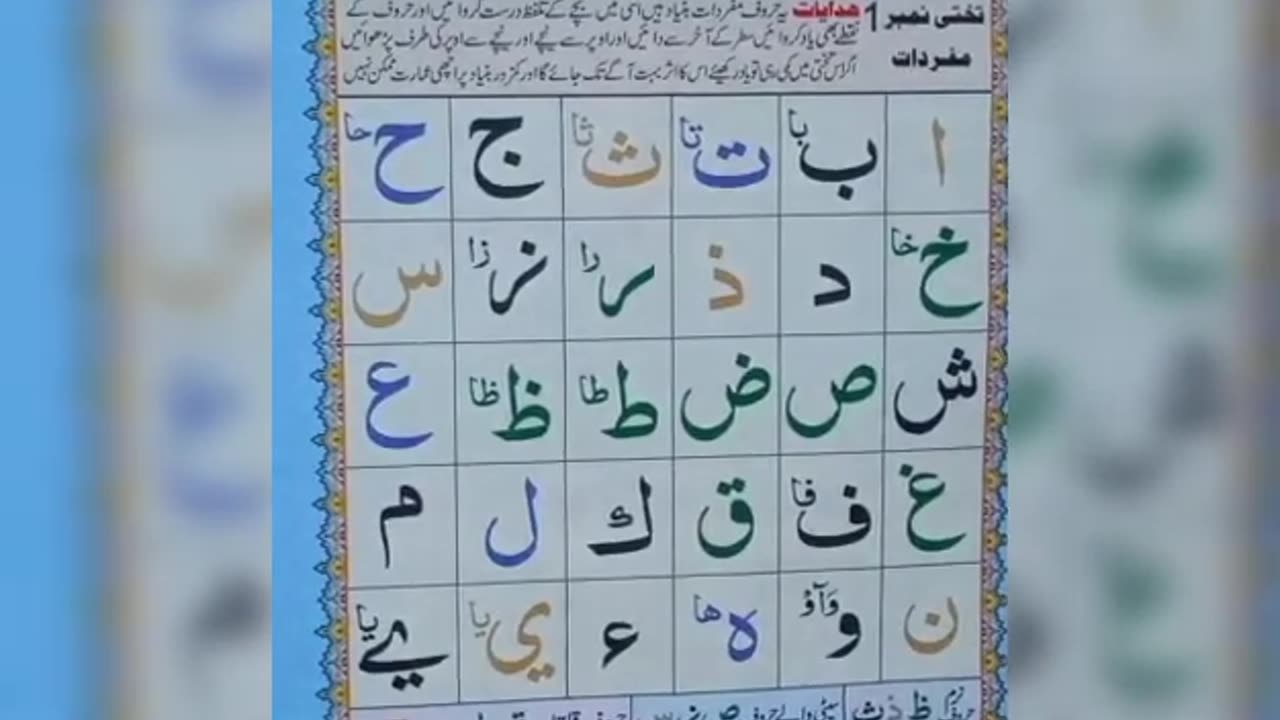 تختی نمبر 1
مفردات
ھدایات یہ حروف مفردات بنیاد ہیں اسی میں بچے کے تلفظ درست کروائیں اور حروف کے
نقطے بھی یاد کروائیں سطر کے آخر سے دائیں اور اوپر سے نیچے اور نیچے سے اوپر کی طرف پڑھوائیں
اگر اس تختی میں کمی رہی تو یاد رکھیئے اس کا اثر بہت آگے تک جائے گا اور کمزور بنیاد پر اچھی عمارت ممکن نہیں
ا ب با ت تا ث ثا ج ح حا
خ خا د ذ ر را ز زا س
ش ص ض ط طا ظ ظا ع
غ ف فا ق ك ل م
ن و وَآوْ ہ ھا ء ي یا ے یا
نرم حروف ظ ذ ث سیٹی والے حروف ص